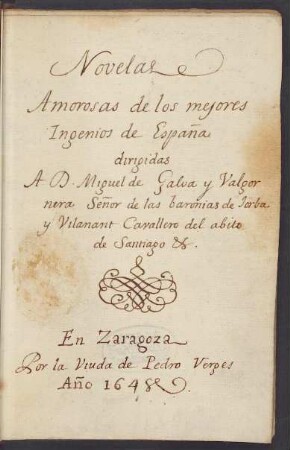 Novelas
Amorosas de los mejores
Ingenios de España
dirigidas
A D. Miguel de Galva y Valgor
nera Señor de las baronias de Jorba
y Vilanant Cavallero del abito
de Santiago &.
En Zaragoza
Por la Viuda de Pedro Verges
Año 1648